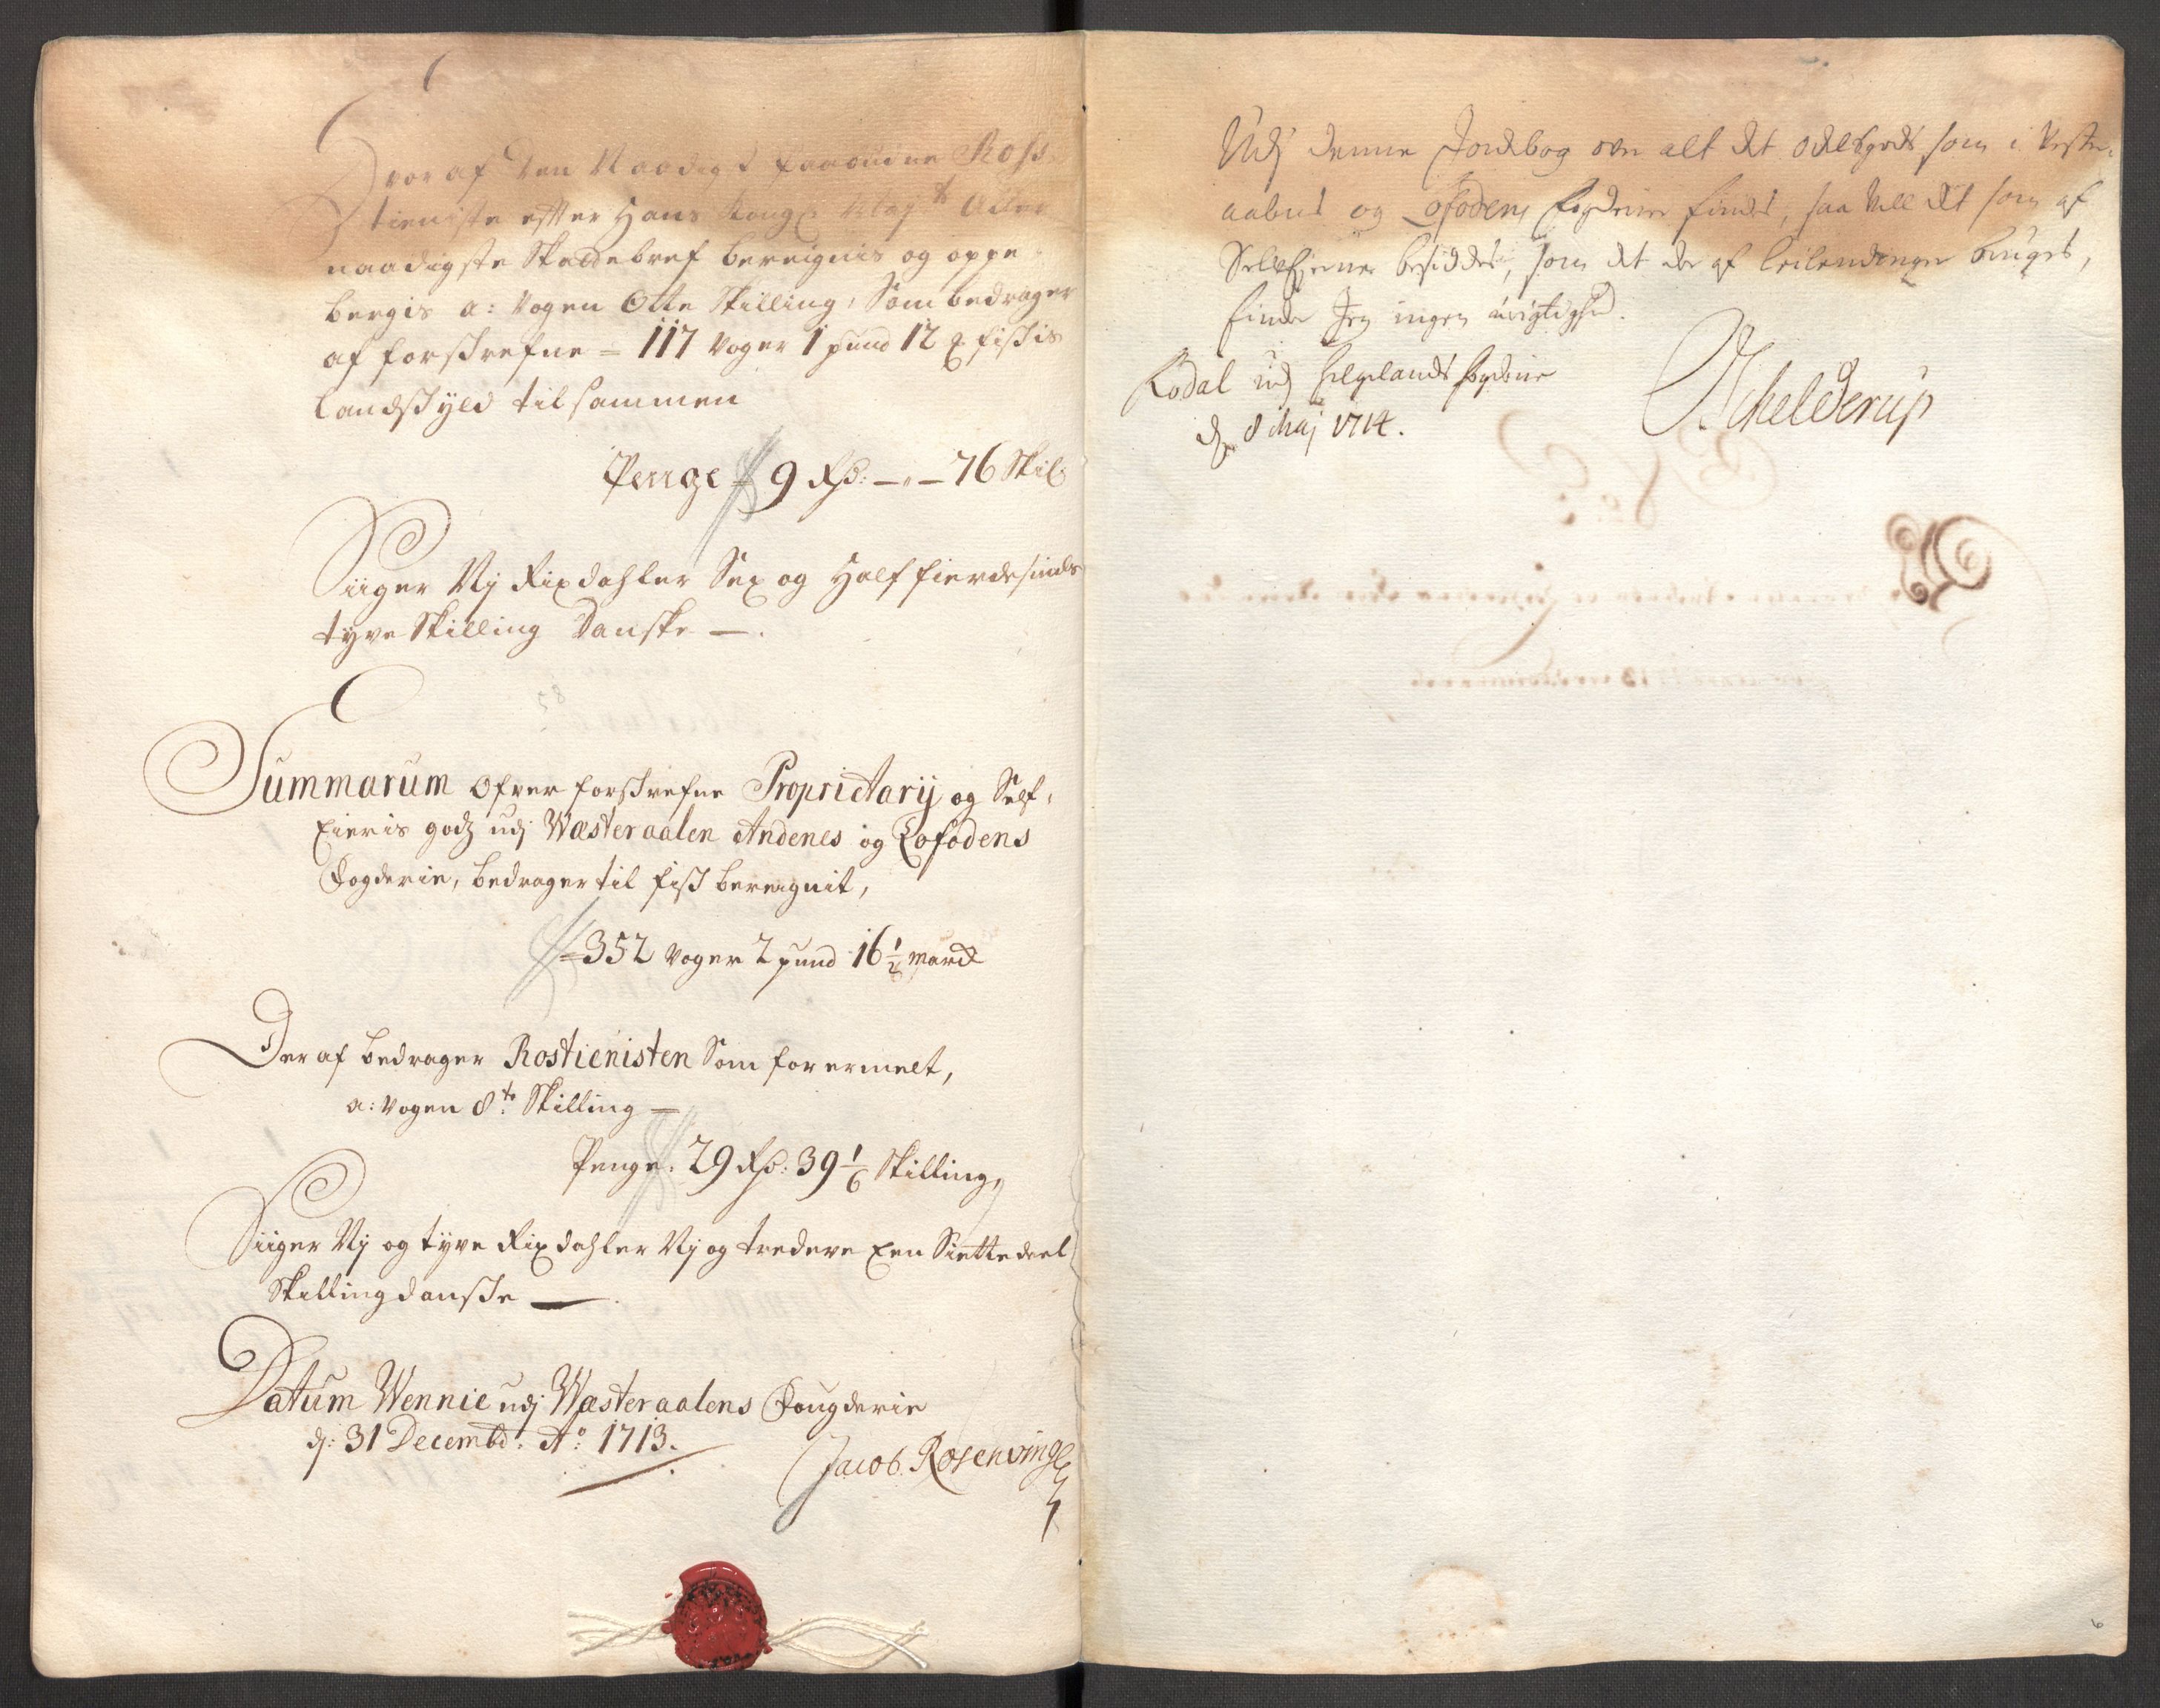 Hvoraf den Naadigst paabudne Ross
tieniste efter Hans Kongl: Maj.ts Aller
naadigste Skattebref bereignis og oppe
bergis a: Vogen Otte Skilling, Som bedrager
af forschrefne = 117 Voger 1 pund 12 ℔ fischis
Landschyld tilsammen
Penge 9 Rd: — " — 76 Skil
Siiger Nj Rixdahler Sex og Half fierdesinds
tyve Skilling Danske —.
Summarum Ofver forschrefne Proprietarij og Self,
Eieris godz udj Wæsteraalen Andenes og Lofodens
Fogderie, bedrager til fisch bereignit,
= 352 Voger 2 pund 16 1/2 march
Der af bedrager Rostienisten Som forermelt,
a: Vogen 8te Skilling —
Penge. 29 Rd: 39 1/6 Skilling,
Siiger Nj og tyve Rixdahler Nj og tredeve Een Siettedeel
Skilling dansche —.
Datum Wennie udj Wæsteraalens Fougderie
d: 31 Decembr: Ao: 1713.
Jacob Rosenvinge
Udj denne Jordebog over alt det odelsgods som i Vester
aalens og Lofodens Fogderie findes, saa vell det som af
Selfejerne besiddes, som det der af leilendinger bruges,
finder Jeg ingen urigtighed.
Rødal udj Helgelands fogderie
d. 8 Maj 1714.
Schelderup
6